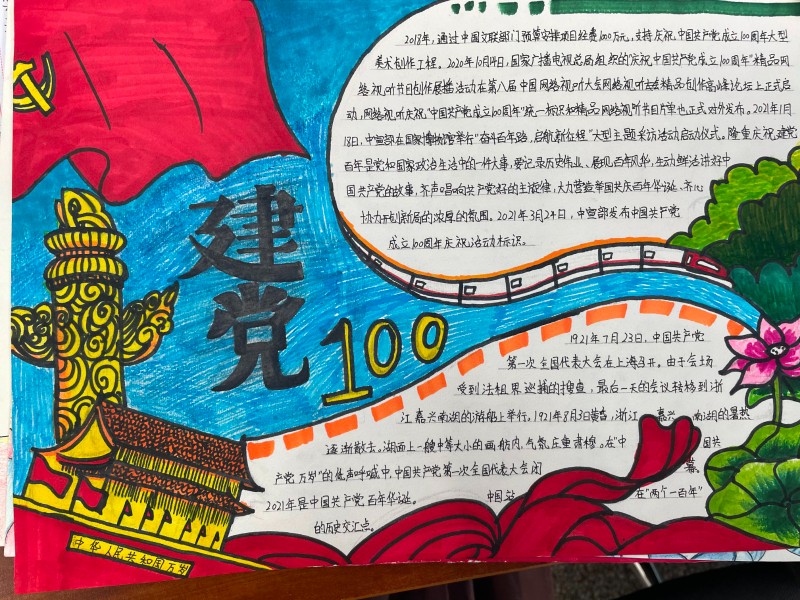 2018年，通过中国文联部门预算安排项目经费600万元，支持庆祝中国共产党成立100周年大型
美术创作工程。2020年10月14日，国家广播电视总局组织的庆祝中国共产党成立100周年"精品网
络视听节目创作展播活动在第八届中国网络视听大会网络视听精品创作高峰论坛上正式启
动，网络视听庆祝"中国共产党成立100周年"统一标识和精品网络视听节目片单也正式对外发布。2021年1月
18日，中宣部在国家博物馆举行"奋斗百年路，启航新征程"大型主题采访活动启动仪式。隆重庆祝建党
百年是党和国家政治生活中的一件大事，要记录历史伟业、展现百年风华，生动鲜活讲好中
国共产党的故事，齐声唱响共产党好的主旋律，大力营造举国共庆百年华诞、齐心
协力开创新局的浓厚的氛围。2021年3月24日，中宣部发布中国共产党
成立100周年庆祝活动标识。
建党
100
1921年7月23日，中国共产党
第一次全国代表大会在上海召开。由于会场
受到法租界巡捕的搜查，最后一天的会议转移到浙
江嘉兴南湖的游船上举行。1921年8月3日黄昏，浙江嘉兴南湖的暑热
逐渐散去。湖面上一艘中等大小的画舫内，气氛庄重肃穆。在"中国共
产党万岁"的低声呼喊中，中国共产党第一次全国代表大会闭幕。
2021年是中国共产党百年华诞。中国站在"两个一百年"
的历史交汇点。
中华人民共和国万岁